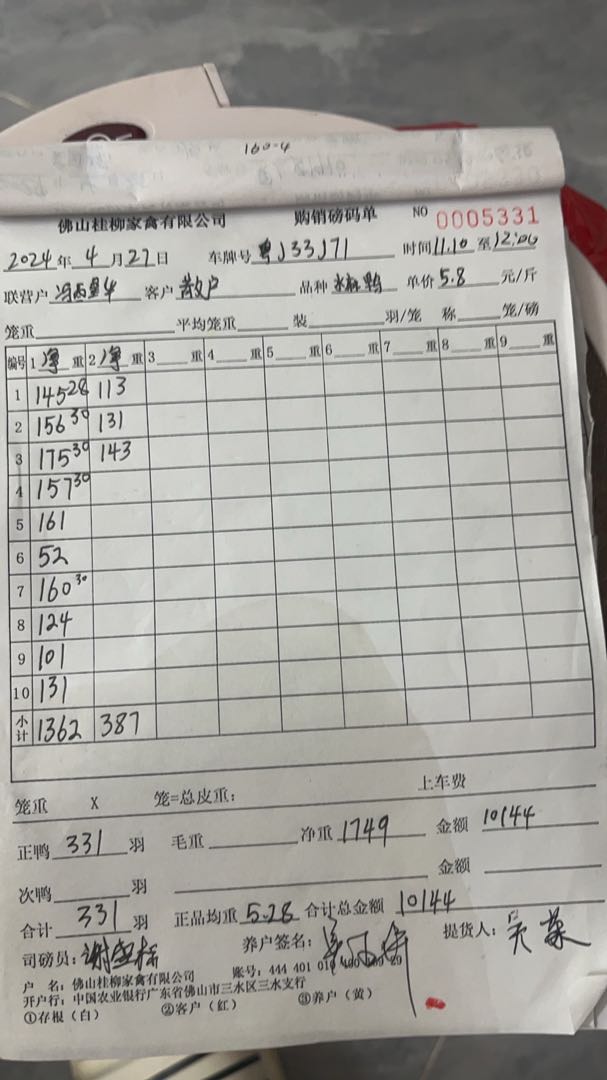 160-4
佛山桂柳家禽有限公司 购销磅码单 NO 0005331
2024年4月27日 车牌号 粤J33J71 时间11.10至12:06
联营户 客户 散户 品种 单价5.8元/斤
笼重 平均笼重 装 羽/笼 称 笼/磅
编号 1净重 2净重 3重 4重 5重 6重 7重 8重 9重
1 145 28 113
2 156 30 131
3 175 30 143
4 157 30
5 161
6 52
7 160 30
8 124
9 101
10 131
小计 1362 387
笼重 X 笼=总皮重: 上车费
正鸭 331 羽 毛重 净重 1749 金额 10144
次鸭 羽 金额
合计 331 羽 正品均重 5.28 合计总金额 10144
司磅员: 养户签名: 提货人:
户 名: 佛山桂柳家禽有限公司 账号: 444 401 010 400
开户行: 中国农业银行广东省佛山市三水区三水支行
①存根（白） ②客户（红） ③养户（黄）